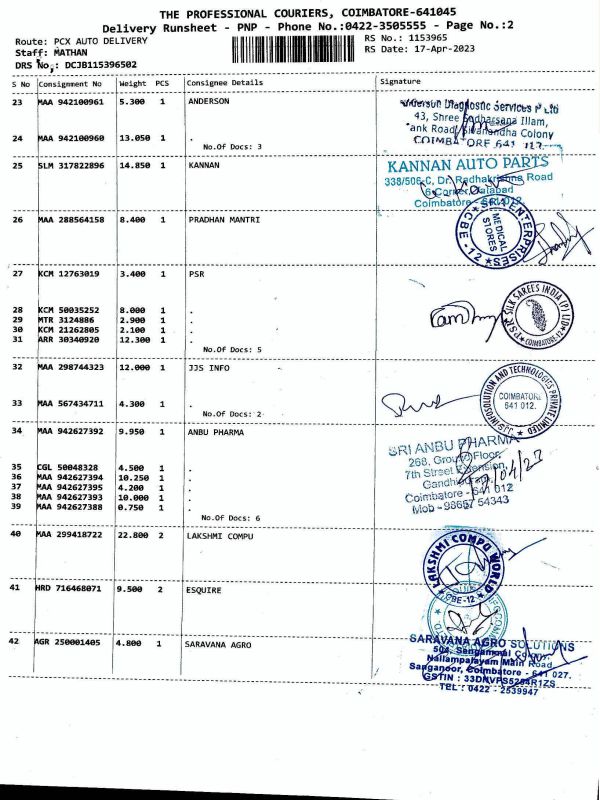 THE PROFESSIONAL COURIERS, COIMBATORE-641045
Delivery Runsheet - PNP - Phone No.:0422-3505555 - Page No.:2
Route: PCX AUTO DELIVERY
RS No.: 1153965
Staff: MATHAN
RS Date: 17-Apr-2023
DRS No.: DCJB115396502
S No Consignment No Weight PCS Consignee Details Signature
23 MAA 942100961 5.300 1 ANDERSON
Diagnostic Services P Ltd
43, Shree Illam,
Colony
24 MAA 942100960 13.050 1 .
No.Of Docs: 3
25 SLM 317822896 14.850 1 KANNAN
KANNAN AUTO PARTS
338/506-C, Dr. Radhakrishna Road
Coimbatore - 641 012
26 MAA 288564158 8.400 1 PRADHAN MANTRI
SRI ENTERPRISES
MEDICAL STORES
CBE - 12
27 KCM 12763019 3.400 1 PSR
PSR SILK SAREES INDIA (P) LTD
COIMBATORE-12
28 KCM 50035252 8.000 1 .
29 MTR 3124886 2.900 1 .
30 KCM 21262805 2.100 1 .
31 ARR 30340920 12.300 1 .
No.Of Docs: 5
32 MAA 298744323 12.000 1 JJS INFO
JJS INFOSOLUTION AND TECHNOLOGIES PRIVATE LIMITED
COIMBATORE
641 012.
33 MAA 567434711 4.300 1 .
No.Of Docs: 2
34 MAA 942627392 9.950 1 ANBU PHARMA
SRI ANBU PHARMA
268, Ground Floor,
7th Street Extension,
Gandhipuram,
Coimbatore - 641 012
Mob - 98657 54343
35 CGL 50048328 4.500 1 .
36 MAA 942627394 10.250 1 .
37 MAA 942627395 4.200 1 .
38 MAA 942627393 10.000 1 .
39 MAA 942627388 0.750 1 .
No.Of Docs: 6
40 MAA 299418722 22.800 2 LAKSHMI COMPU
LAKSHMI COMPU WORLD
CBE-12
41 HRD 716468071 9.500 2 ESQUIRE
42 AGR 250001405 4.800 1 SARAVANA AGRO
SARAVANA AGRO SOLUTIONS
504, Sengammal Colony,
Nallampalayam Main Road
Sanganoor, Coimbatore - 641 027.
TEL : 0422 - 2539947